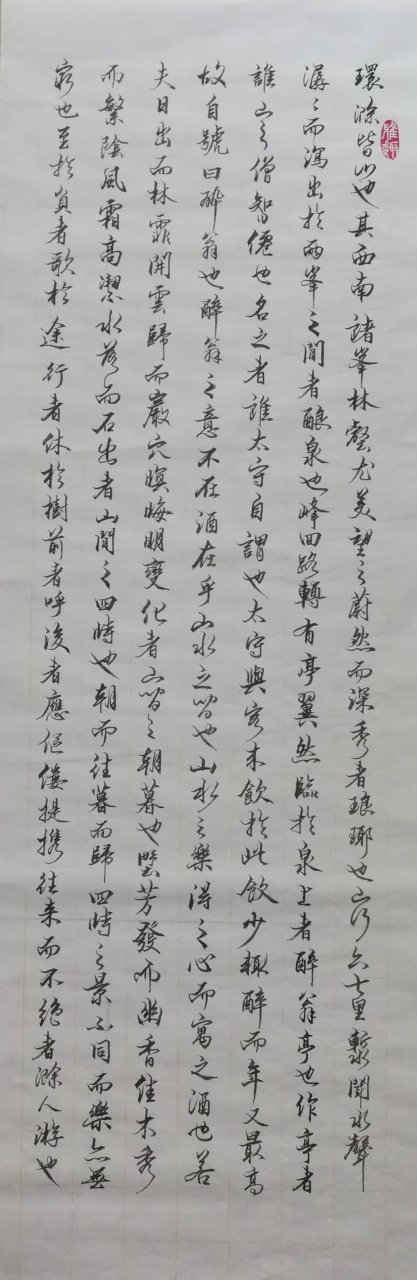 環滁皆山也其西南諸峯林壑尤美望之蔚然而深秀者琅瑘也山行六七里漸聞水聲
潺〻而瀉出於兩峯之間者釀泉也峰回路轉有亭翼然臨於泉上者醉翁亭也作亭者
誰山之僧智僊也名之者誰太守自謂也太守與客來飲於此飲少輒醉而年又最高
故自號曰醉翁也醉翁之意不在酒在乎山水之間也山水之樂得之心而寓之酒也若
夫日出而林霏開雲歸而巖穴暝晦明變化者山間之朝暮也野芳發而幽香佳木秀
而繁陰風霜高潔水落而石出者山間之四時也朝而往暮而歸四時之景不同而樂亦無
窮也至於負者歌於途行者休於樹前者呼後者應傴僂提攜往来而不絕者滁人游也
雅趣